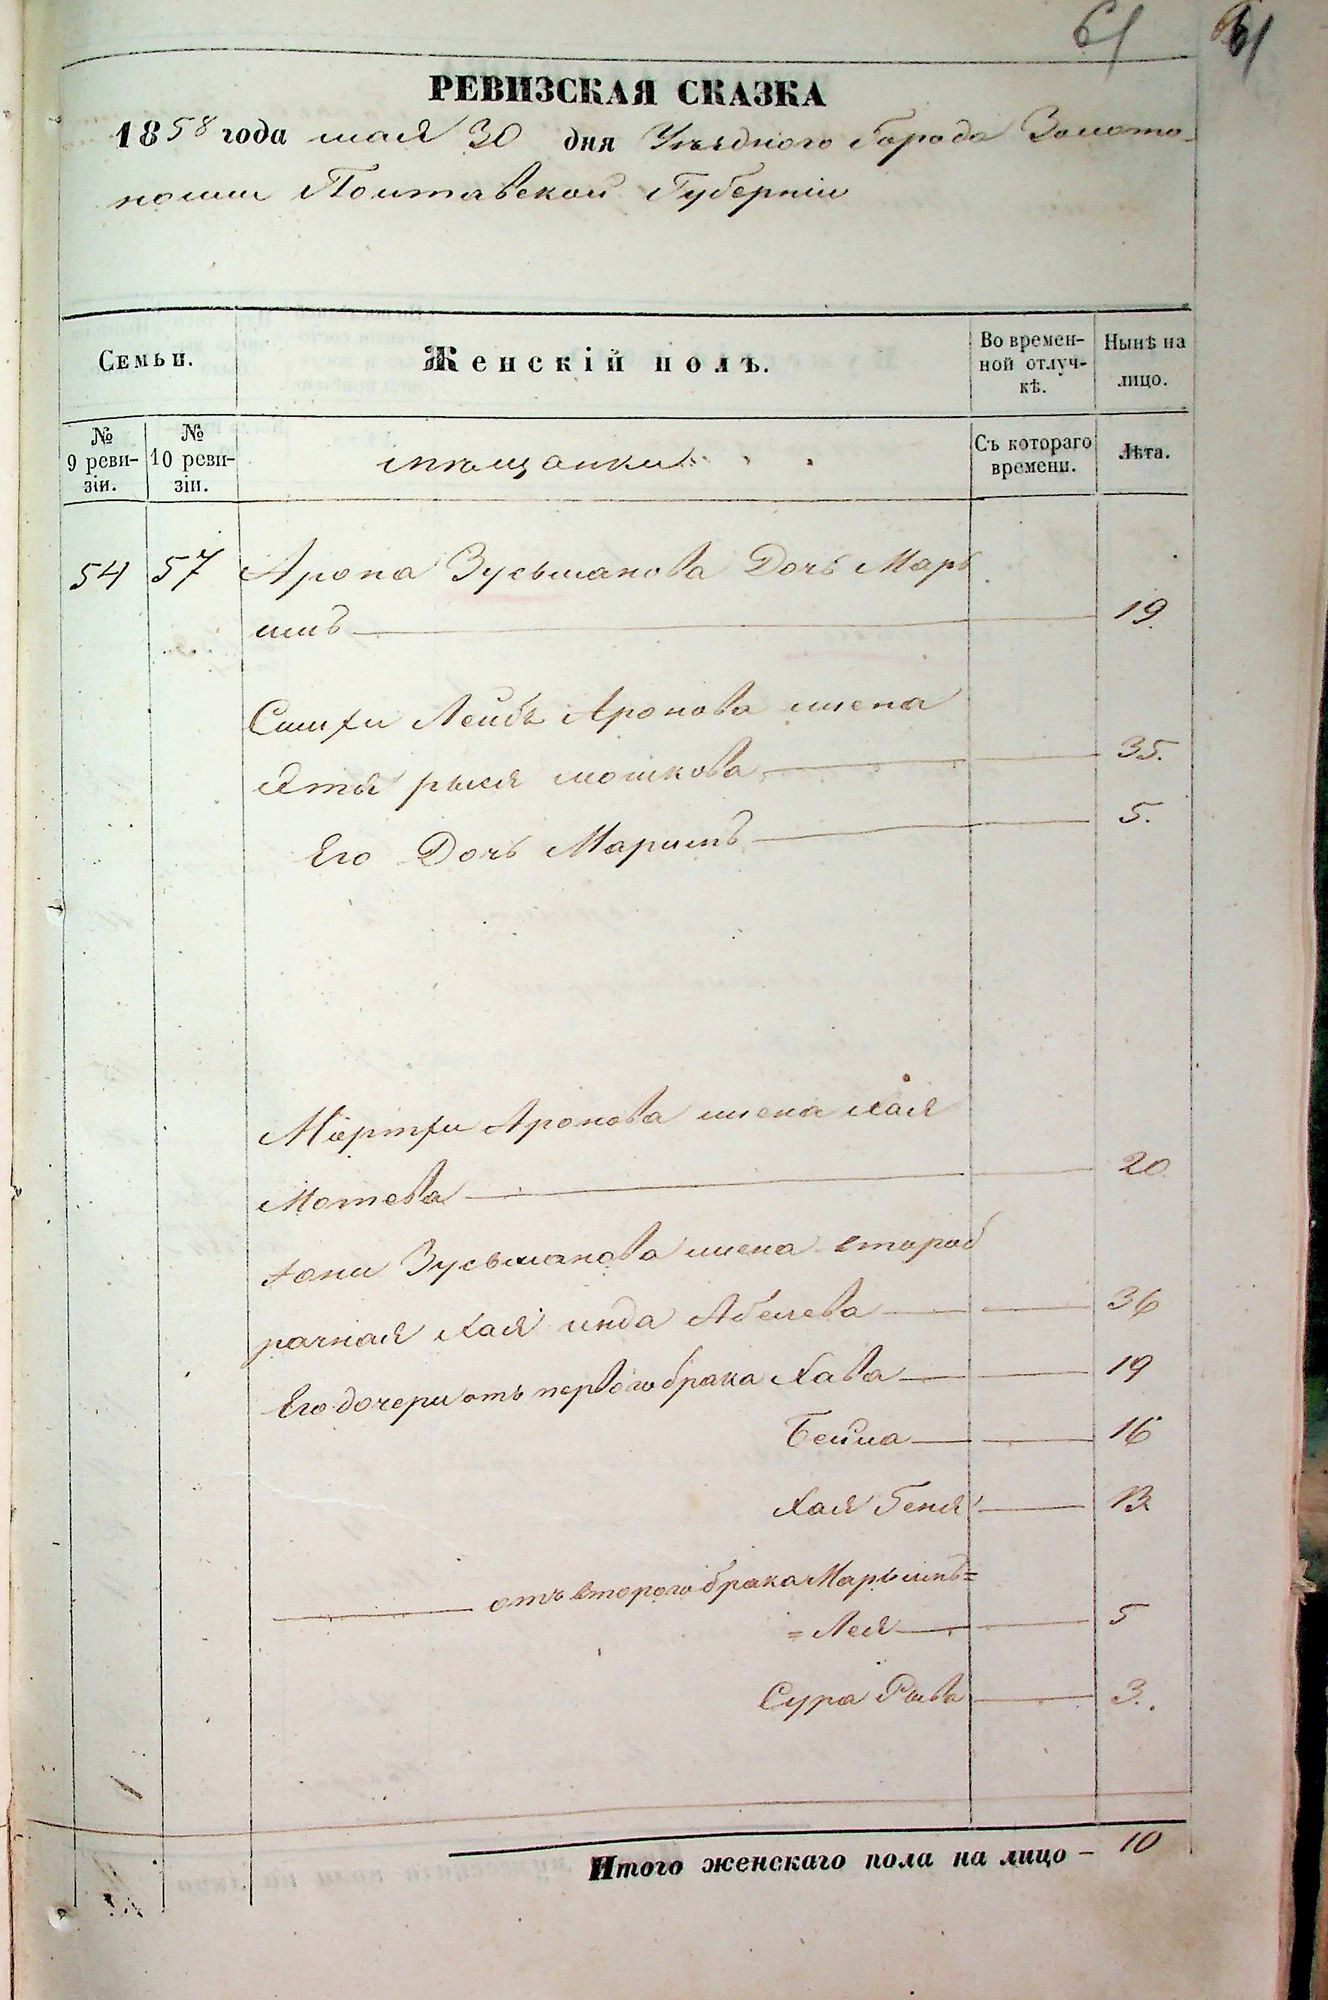 61 61
РЕВИЗСКАЯ СКАЗКА
1858 года мая 30 дня Уѣзднаго Города Золото-
ноши Полтавской Губерніи
Семьи.
Женскій полъ.
Во времен-
ной отлуч-
кѣ.
Нынѣ на
лицо.
№
9 реви-
зіи.
№
10 реви-
зіи.
мѣщанки
Съ котораго
времени.
Лѣта.
54 57 Арона Зусьманова Дочь Марь
имъ 19
Симхи Лейбъ Аронова жена
Этья рыся мошкова 35.
Его Дочь Маримъ 5.
Мортхи Аронова жена Хая
Мотева 20
Хони Зусьманова жена второб
рачная Хая инда Абелева 36
Его дочери отъ перваго брака Хава 19
Бейла 16
Хая Геня 13
отъ втораго брака Марьямъ=
=Лея 5
Сура Рива 3.
Итого женскаго пола на лицо – 10